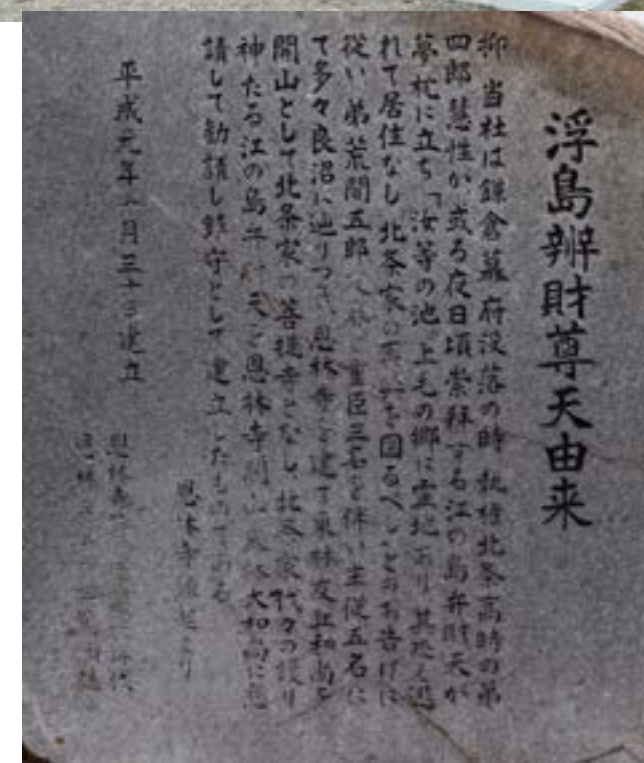 浮島辨財尊天由来
抑 当社は鎌倉幕府没落の時 執権北条高時の弟
四郎慧性が或る夜日頃崇拝する江の島弁財天が
夢枕に立ち「汝等の池 上毛の郷に霊地あり 其処に逃
れて居住なし 北条家の を図るべしとのお告げに
従い 弟荒間五郎 重臣三名を伴い 主従五名に
て多々良沼に辿りつき 恩林寺を建て東林友丘和尚を
開山として北条家の菩提寺となし 北条家代々の護り
神たる江の島弁財天を恩林寺開山 大和尚に懇
請して勧請し鎮守として建立したものである
恩林寺縁起より
平成元年 月三十日建立
恩林寺 代
恩林